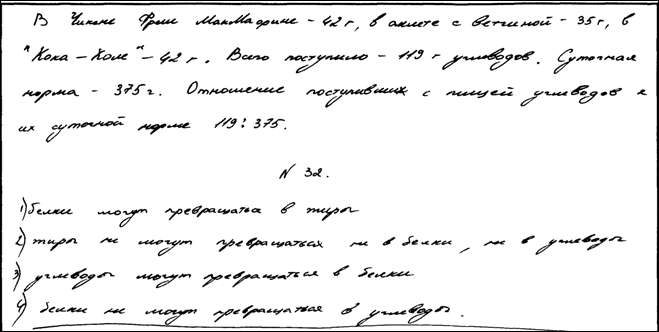 В Чикене Фреш МакМаффине - 42 г, в омлете с ветчиной - 35 г, в
"Кока-Коле" - 42 г. Всего поступило - 119 г углеводов. Суточная
норма - 375 г. Отношение поступивших с пищей углеводов к
их суточной норме 119:375.
N 32.
1) белки могут превращаться в жиры
2) жиры не могут превращаться ни в белки, ни в углеводы
3) углеводы могут превращаться в белки
4) белки не могут превращаться в углеводы.